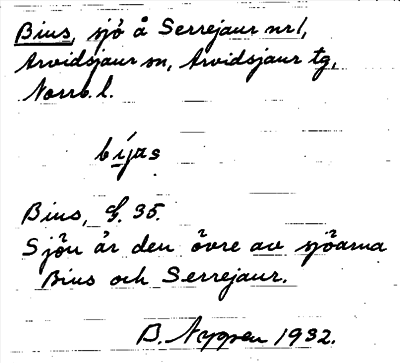 Bius, sjö å Serrejaur nr 1,
Arvidsjaur sn, Arvidsjaur tg,
Norrb. l.
bijas
Bius, G. 35.
Sjön är den övre av sjöarna
Bius och Serrejaur.
B. Nappen 1932.